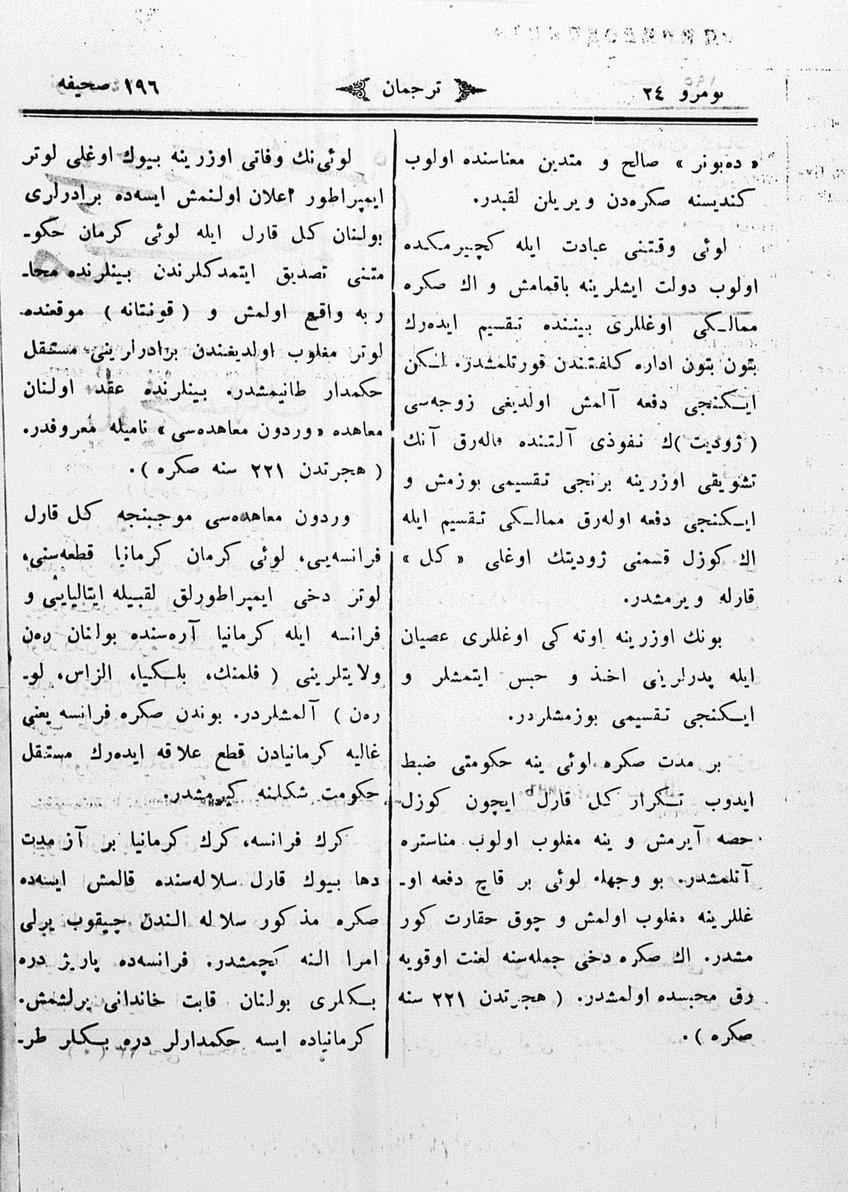 نومرو ٢٤
ترجمان
١٩٦ صحيفه
« ده‌بونر » صالح و متدين معناسنده اولوب
كنديسنه صكره‌دن ويريلن لقبدر.
لوئی وقتنی عبادت ايله كچيرمكده
اولوب دولت ايشلرينه باقمامش و اك صكره
ممالـكی اوغللری بيننده تقسيم ايده‌رك
بتون بتون اداره كلفتندن قورتلمشدر. لـكن
ايـكنجی دفعه آلمش اولديغی زوجه‌سی
( ژوديت )ك نفوذی آلتنده قاله‌رق آنك
تشويقی اوزرينه برنجی تقسيمی بوزمش و
ايـكنجی دفعه اوله‌رق ممالـكی تقسيم ايله
اك كوزل قسمنی ژوديتك اوغلی « كل »
قارله ويرمشدر.
بونك اوزرينه اوته كی اوغللری عصيان
ايله پدرلرينی اخذ و حبس ايتمشلر و
ايـكنجی تقسيمی بوزمشلردر.
بر مدت صكره لوئی ينه حكومتی ضبط
ايدوب تـكرار كل قارل ايچون كوزل
حصه آيرمش و ينه مغلوب اولوب مناستره
آتلمشدر. بو وجهله لوئی بر قاچ دفعه او-
غللرينه مغلوب اولمش و چوق حقارت كور
مشدر. اك صكره دخی جمله‌سنه لعنت اوقويه
رق محبسده اولمشدر. ( هجرتدن ٢٢١ سنه
صكره ).
لوئی‌نك وفاتی اوزرينه بيوك اوغلی لوتر
ايمپراطور اعلان اولنمش ايسه‌ده برادرلری
بولنان كل قارل ايله لوئی كرمان حكو-
متنی تصديق ايتمدكلرندن بينلرنده محا-
ربه واقع اولمش و ( قونتانه ) موقعنده
لوتر مغلوب اولديغندن برادرلرينی مستقل
حكمدار طانيمشدر. بينلرنده عقد اولنان
معاهده « وردون معاهده‌سی » ناميله معروفدر.
( هجرتدن ٢٢١ سنه صكره ).
وردون معاهده‌سی موجبنجه كل قارل
فرانسه‌يی، لوئی كرمان كرمانيا قطعه‌سنی،
لوتر دخی ايمپراطورلق لقبيله ايتاليايی و
فرانسه ايله كرمانيا آره‌سنده بولنان ره‌ن
ولايتلرينی ( فلمنك، بلـكيا، الزاس، لو-
ره‌ن ) آلمشلردر. بوندن صكره فرانسه يعنی
غاليه كرمانيادن قطع علاقه ايده‌رك مستقل
حكومت شكلنه كيرمشدر.
كرك فرانسه، كرك كرمانيا بر آز مدت
دها بيوك قارل سلاله‌سنده قالمش ايسه‌ده
صكره مذكور سلاله الندن چيقوب يرلی
امرا النه كچمشدر. فرانسه‌ده پاريژ دره
بـكلری بولنان قاپت خاندانی يرلشمش.
كرمانياده ايسه حكمدارلر دره بـكلر طر-